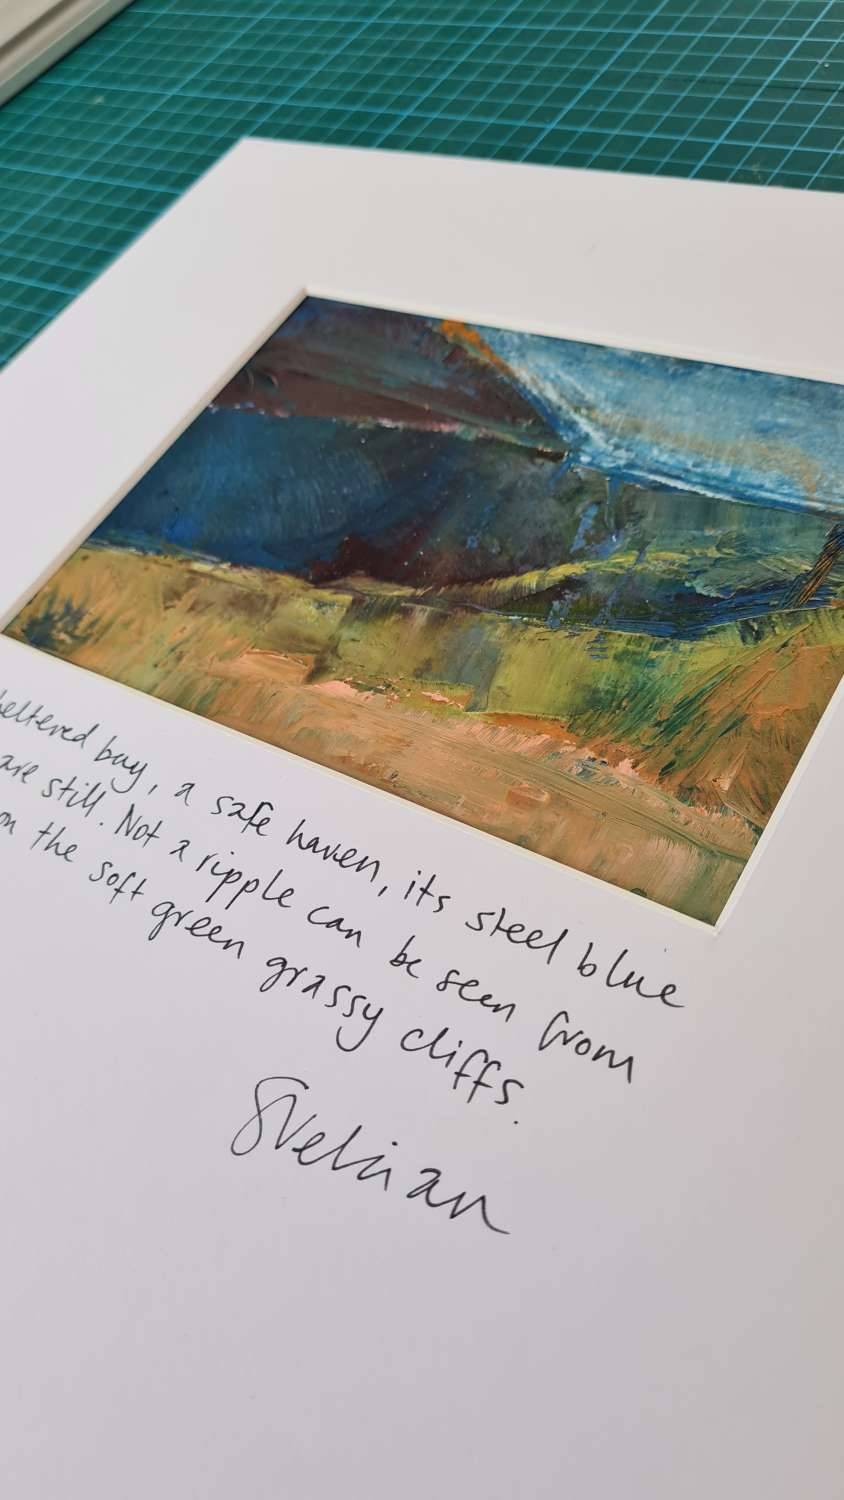 heltered bay, a safe haven, its steel blue
are still. Not a ripple can be seen from
on the soft green grassy cliffs.